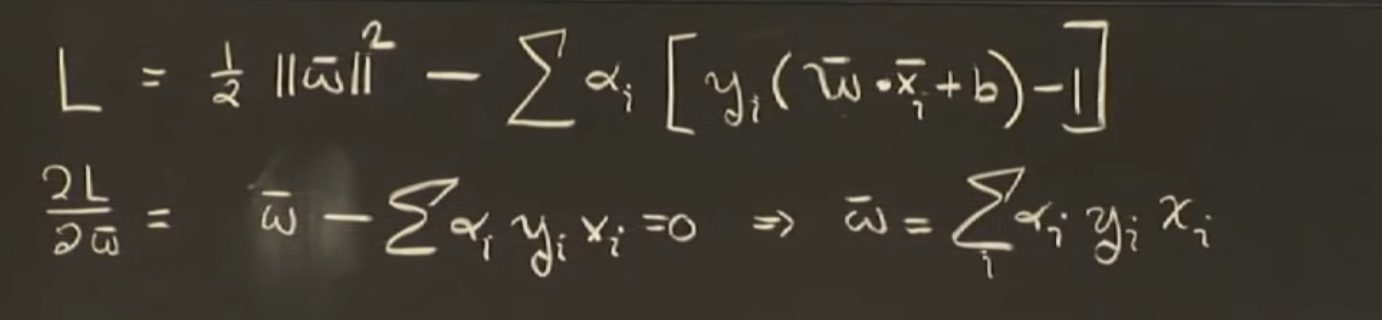 L = ½ ||w̄||² − ∑ αᵢ [ yᵢ ( w̄ · x̄ᵢ + b ) − 1 ]
∂L/∂w̄ = w̄ − ∑ αᵢ yᵢ xᵢ = 0 ⇒ w̄ = ∑ᵢ αᵢ yᵢ xᵢ